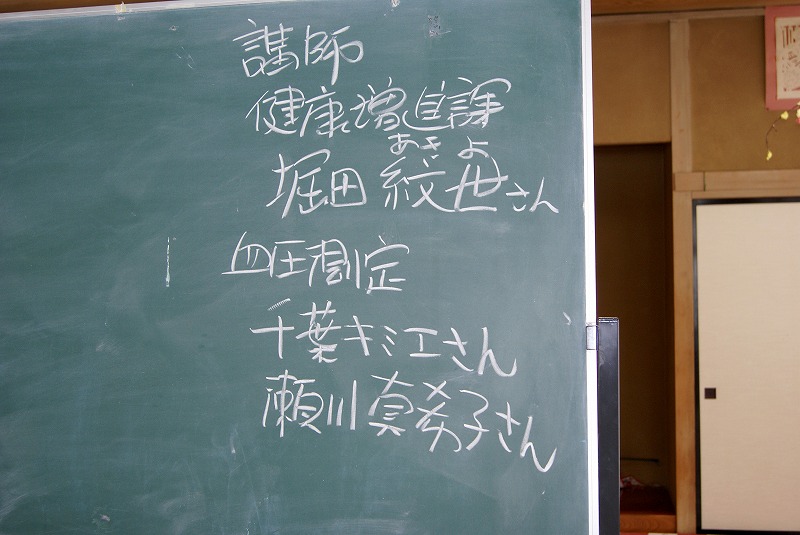 講師
健康増進課
あきよ
堀田 紋世さん
血圧測定
千葉キミエさん
瀬川真希子さん